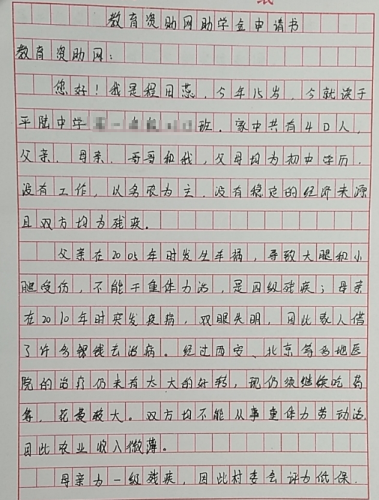 教育资助网助学金申请书
教育资助网：
您好！我是程日蕊，今年15岁，今就读于
平陆中学 班，家中共有4口人，
父亲、母亲、哥哥和我，父母均为初中学历，
没有工作，以务农为主，没有稳定的经济来源
且双方均为残疾。
父亲在2005年时发生车祸，导致大腿和小
腿受伤，不能干重体力活，是四级残疾；母亲
在2010年时突发疾病，双眼失明，因此家人借
了许多钱去治病。经过西安、北京等多地医
院的治疗仍未有太大的好转，现仍须继续吃药
等，花费较大。双方均不能从事重体力劳动活，
因此农业收入微薄。
母亲为一级残疾，因此村委会评为低保，